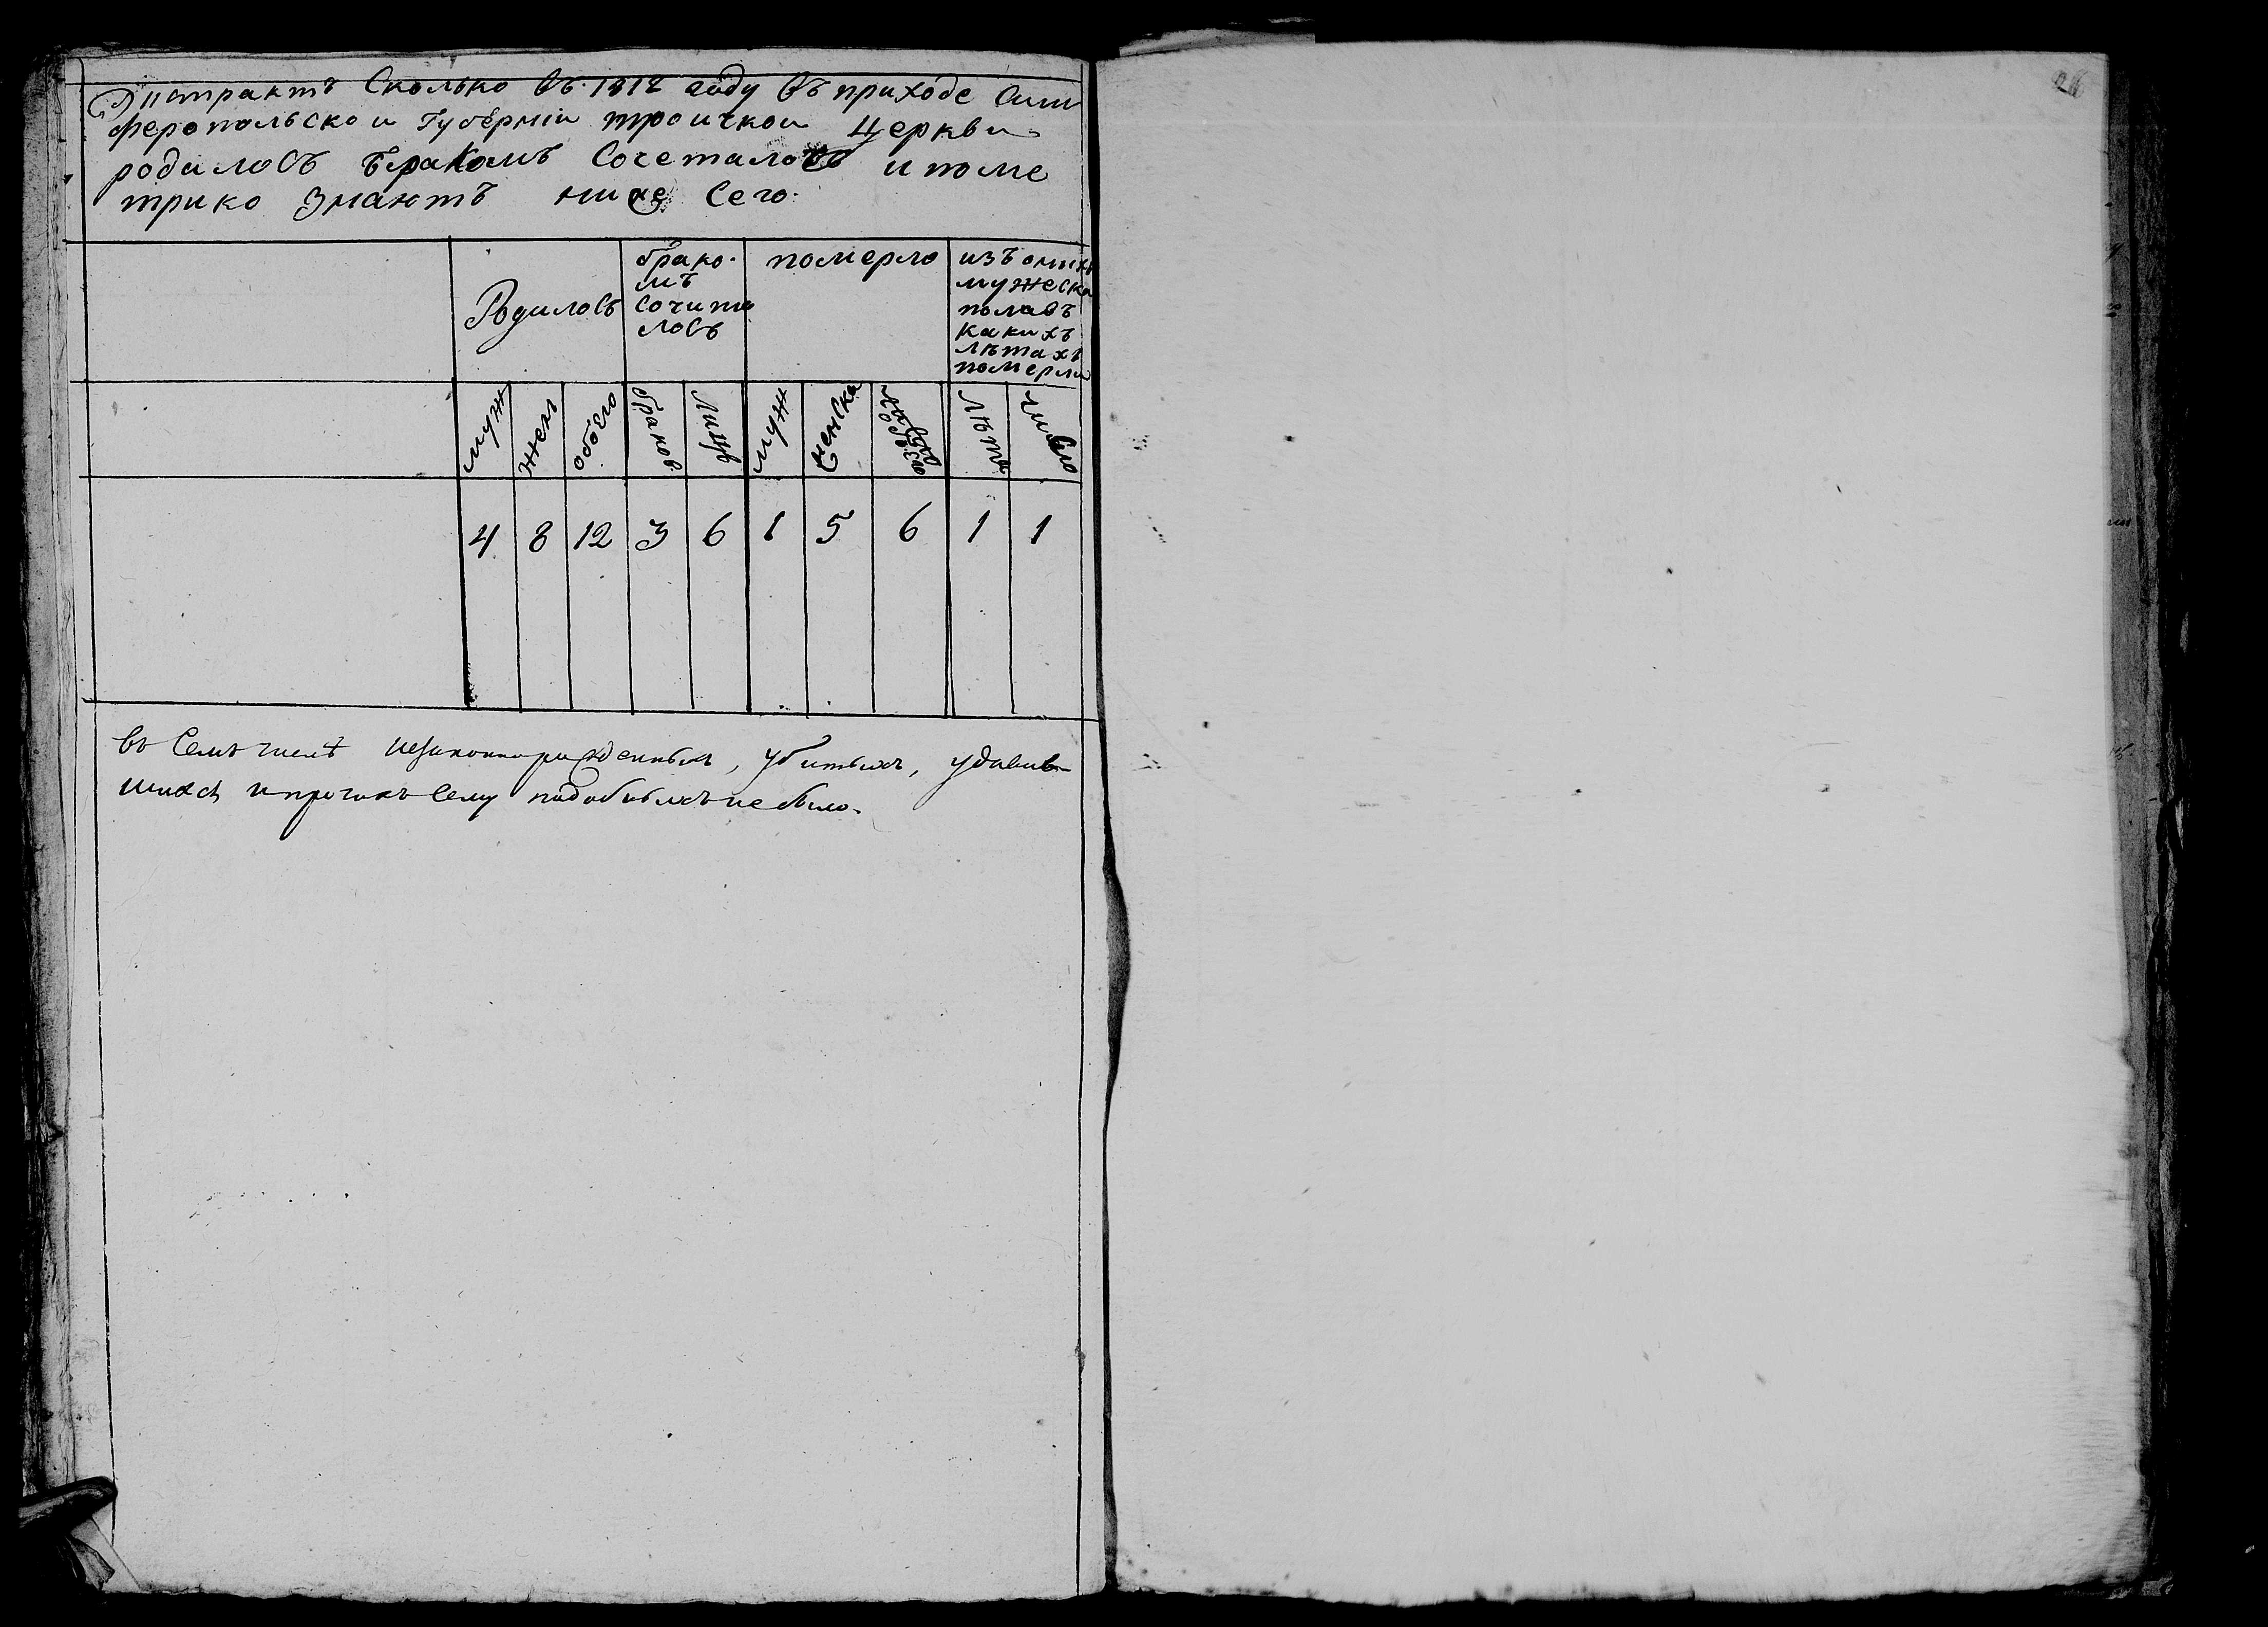 Экстрактъ Сколько Въ 1812 году Въ приходе Сим
феропольскои Губерніи троицкои Церкви
родилось бракомъ Сочеталось и поме
трико Знаютъ ниже Сего.
Родилось
брако.
мъ
Сочита
лось
померло
изъ оныхъ
мужеска
пола въ
какихъ
лѣтахъ
померли
муж
жен
обоего
браков
Лицъ
муж
женска
Лѣта
число
4 8 12 3 6 1 5 6 1 1
въ Семъ числѣ незаконнорожденныхъ, убитыхъ, удавив-
шихся и прочихъ Сему подобныхъ не было.